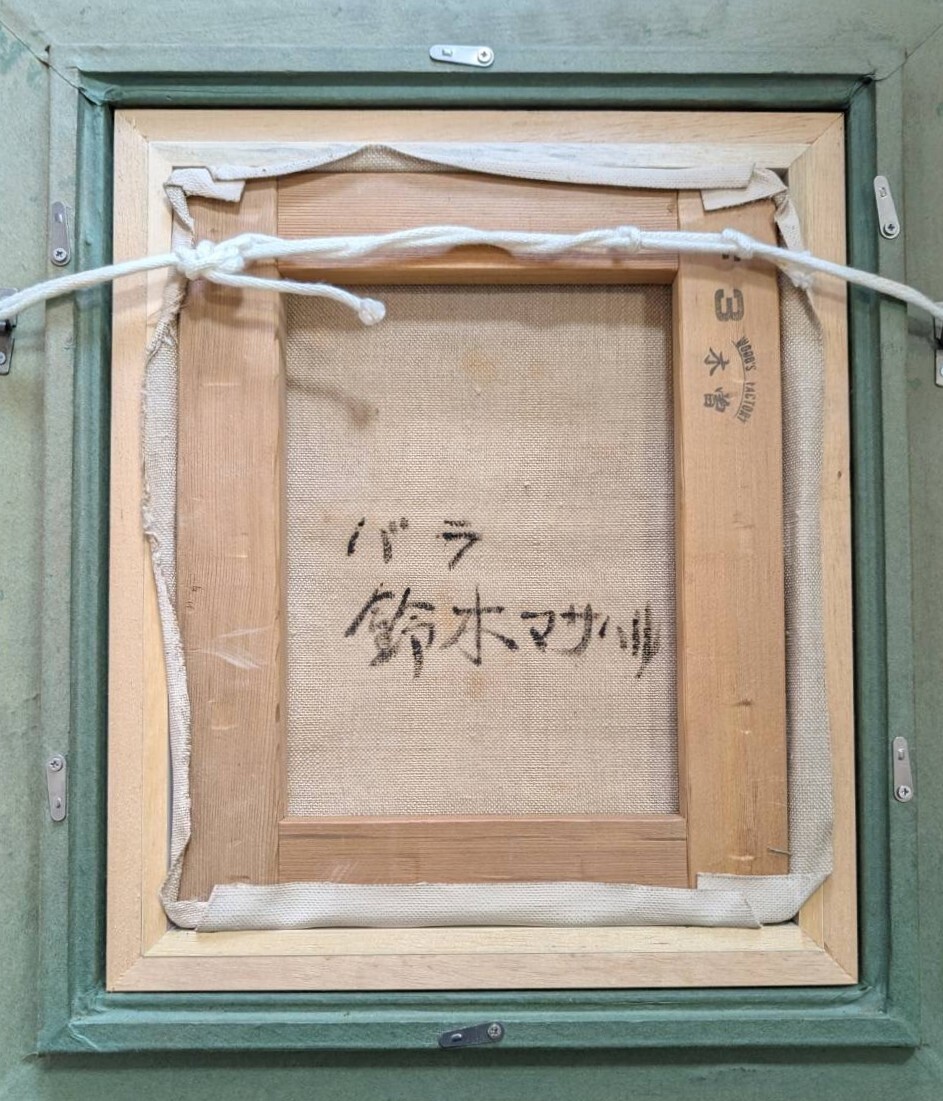 バラ
鈴木マサハル
3
木曽
FACTORY